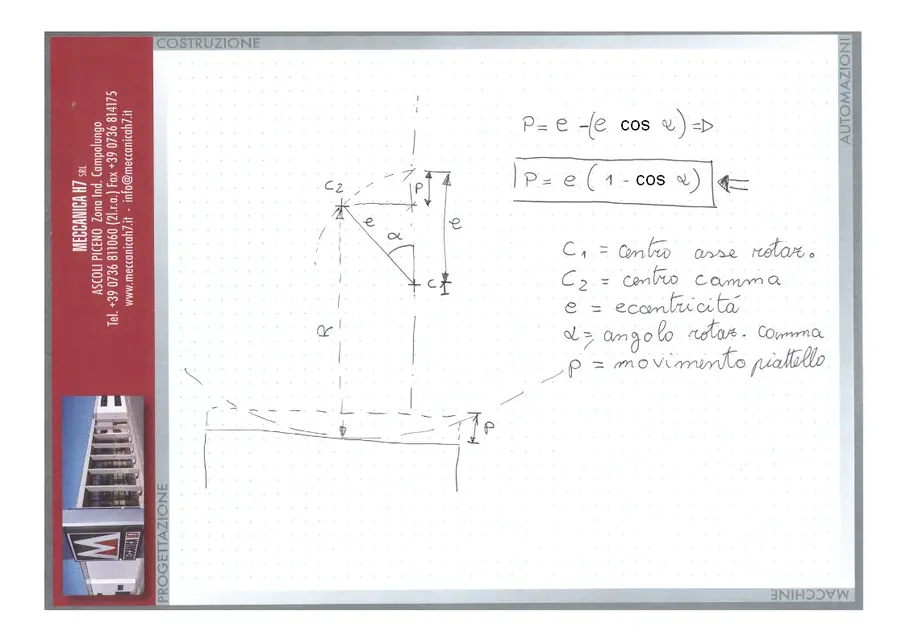 COSTRUZIONE
AUTOMAZIONI
MECCANICA H7 SRL
ASCOLI PICENO Zona Ind. Campolungo
Tel. +39 0736 811060 (2l.r.a.) Fax +39 0736 814175
www.meccanicah7.it - info@meccanicah7.it
P = e - (e cos α) =>
P = e ( 1 - cos α )
C2
P
e
e
α
C1
R
P
C1 = centro asse rotaz.
C2 = centro camma
e = eccentricitá
α = angolo rotaz. camma
P = movimento piattello
PROGETTAZIONE
MACCHINE